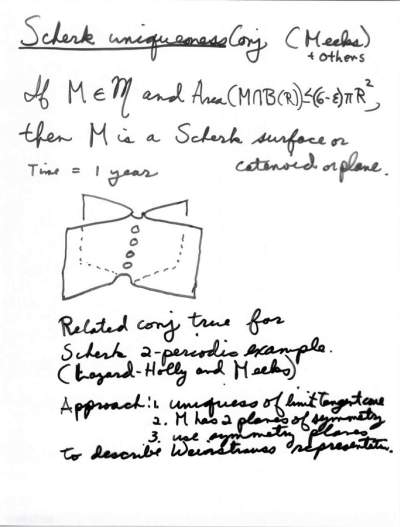 Scherk uniqueness Conj (Meeks)
+ others
If M ∈ M and Area(M∩B(R))≤(6-ε)πR²,
then M is a Scherk surface or
catenoid or plane.
Time = 1 year
Related conj true for
Scherk 2-periodic example.
(Lazard-Holly and Meeks)
Approach: 1. uniquess of limit tangent cone
2. M has 2 planes of symmetry
3. use symmetry planes
to describe Weierstrauss representation.